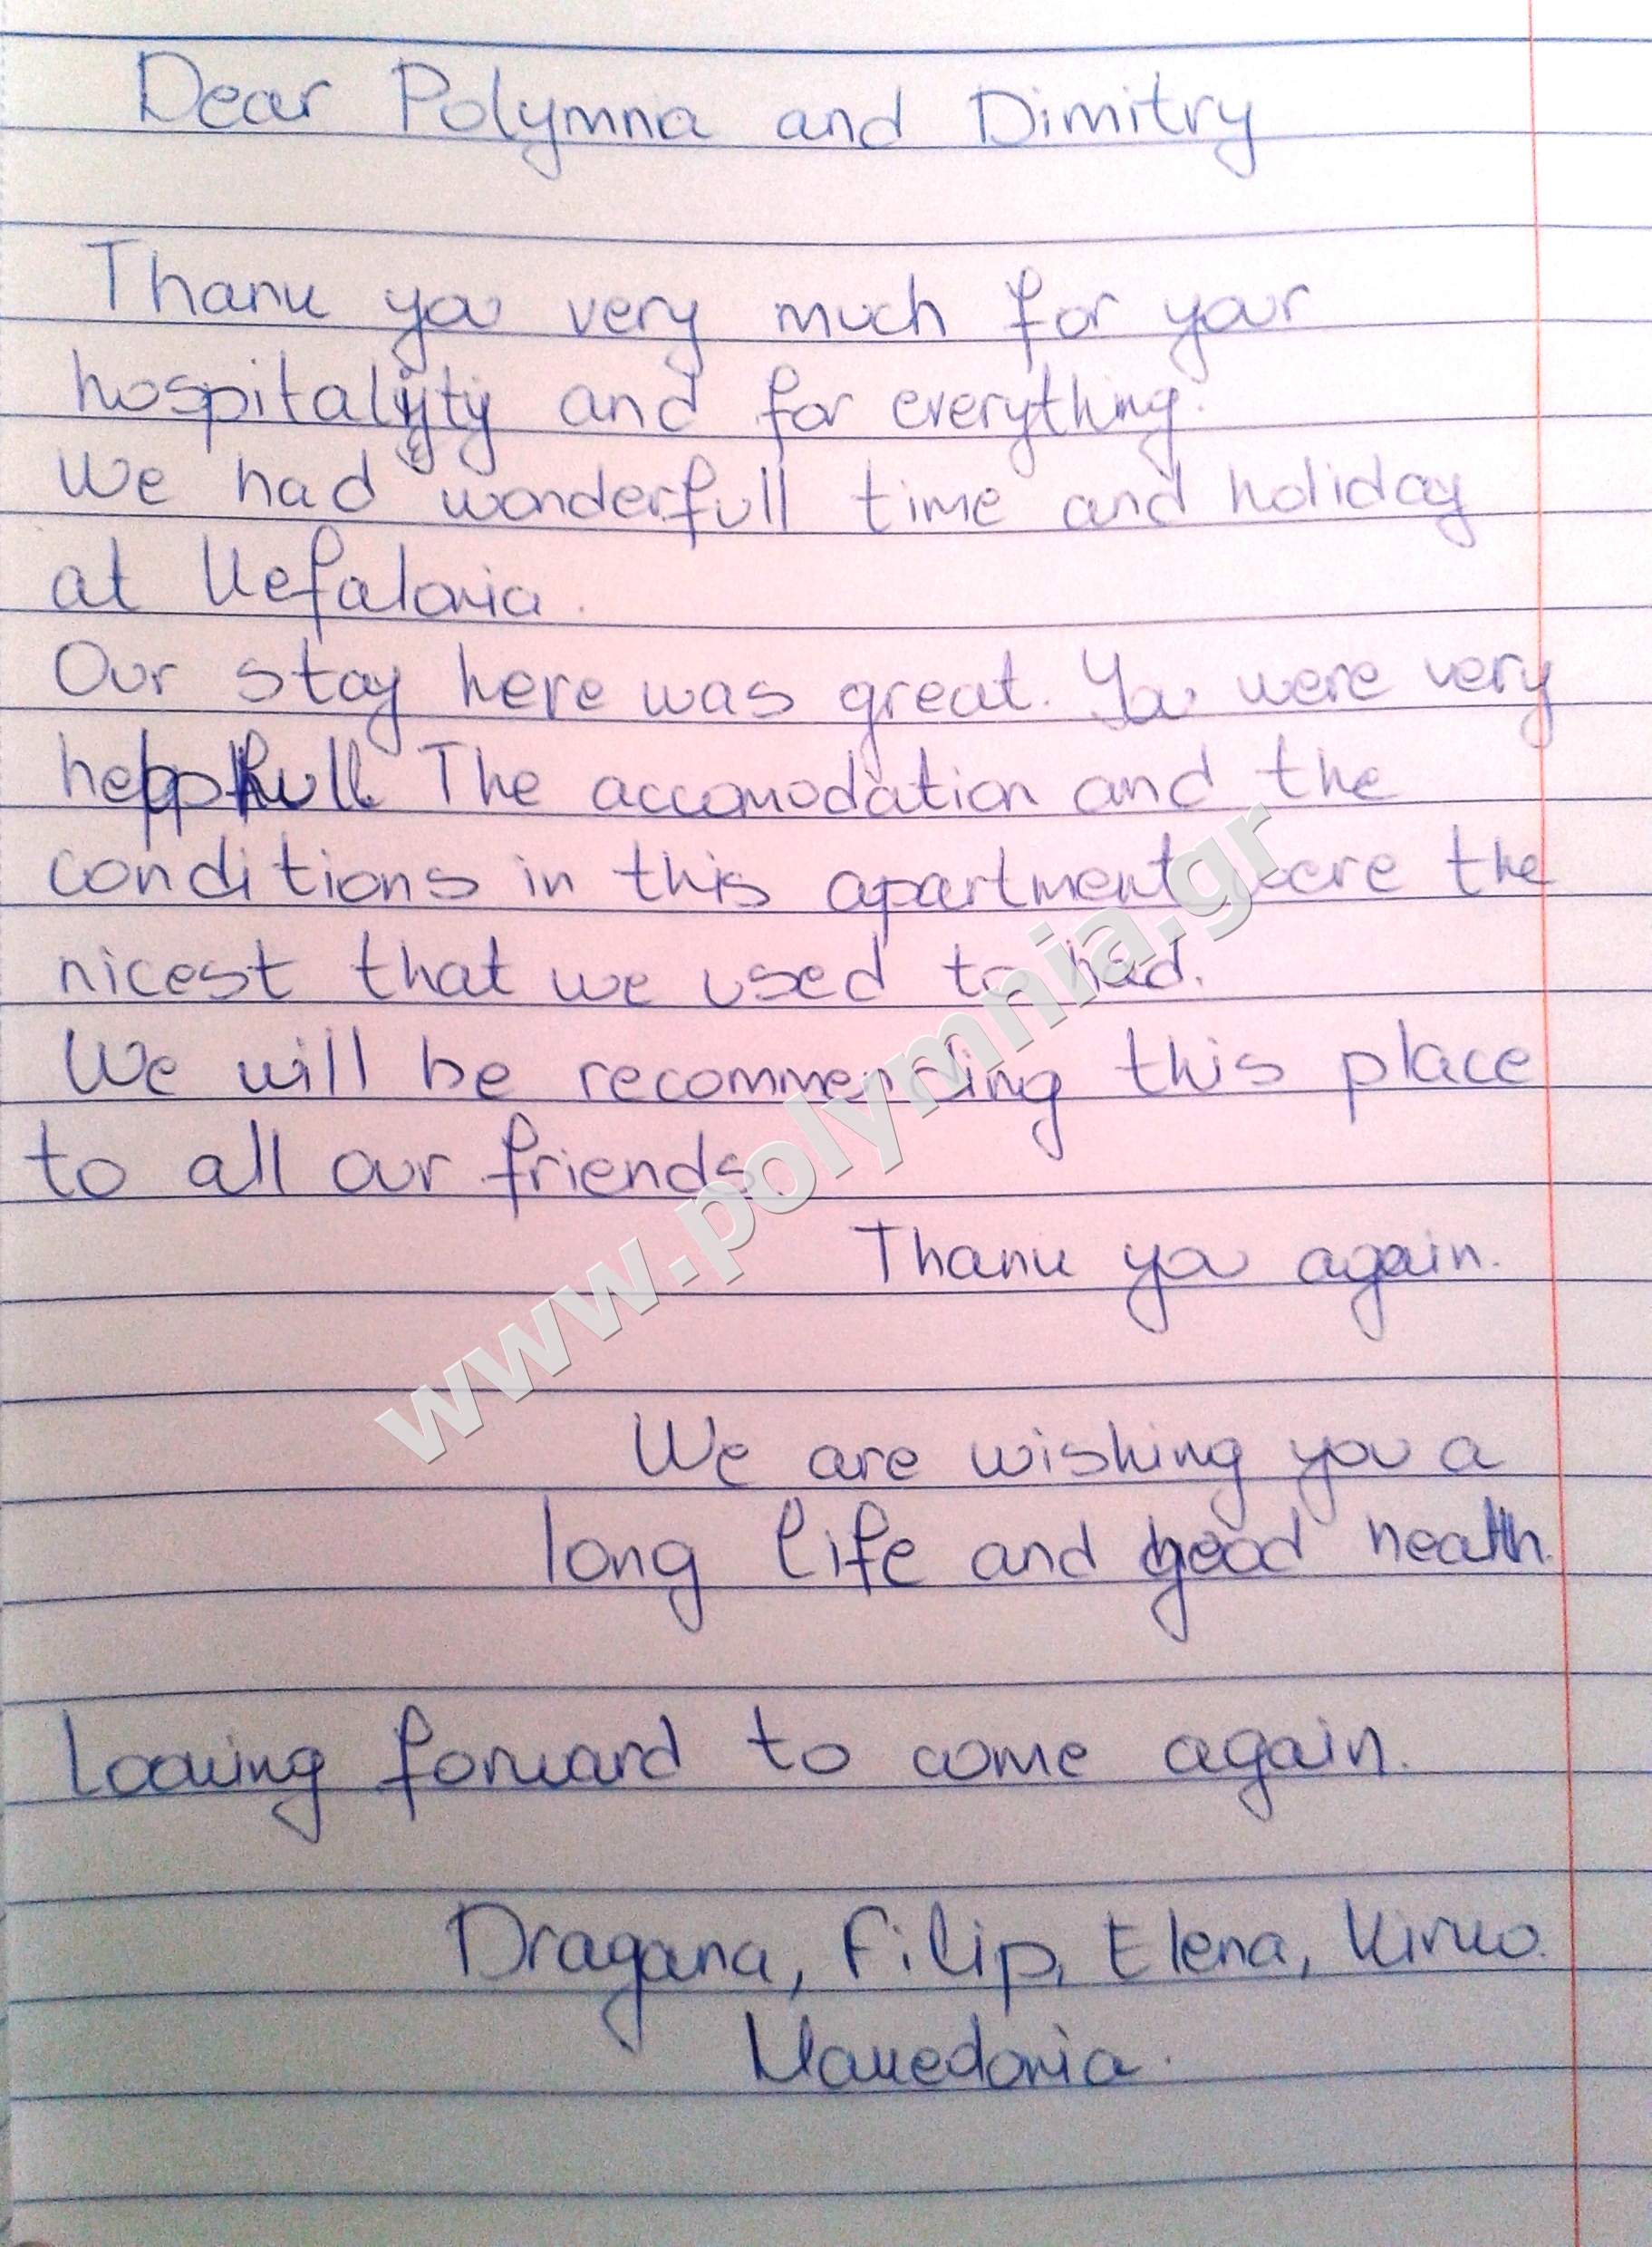 Dear Polymna and Dimitry
Thank you very much for your
hospitality and for everything.
We had wonderfull time and holiday
at Kefalonia.
Our stay here was great. You were very
helpfull. The accomodation and the
conditions in this apartment were the
nicest that we used to had.
We will be recommending this place
to all our friends.
Thank you again.
We are wishing you a
long life and good health.
Looking forward to come again.
Dragana, Filip, Elena, Kirko.
Makedonia.
www.polymnia.gr